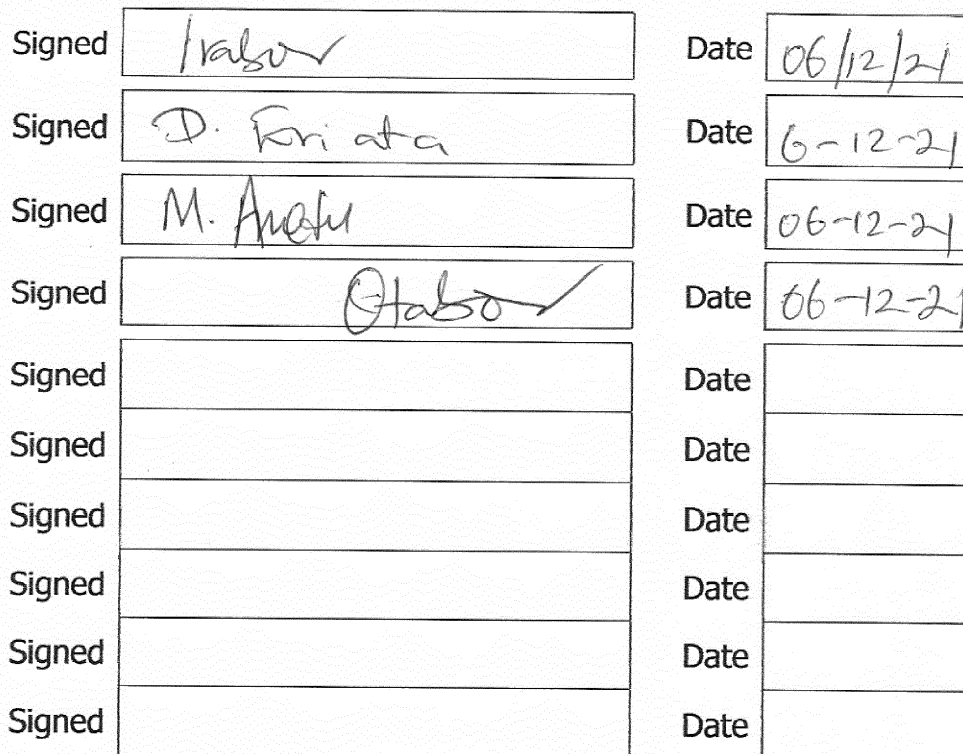 Signed Irabor Date 06/12/21
Signed D. Eriata Date 6-12-21
Signed M. Date 06-12-21
Signed Otabor Date 06-12-21
Signed Date
Signed Date
Signed Date
Signed Date
Signed Date
Signed Date